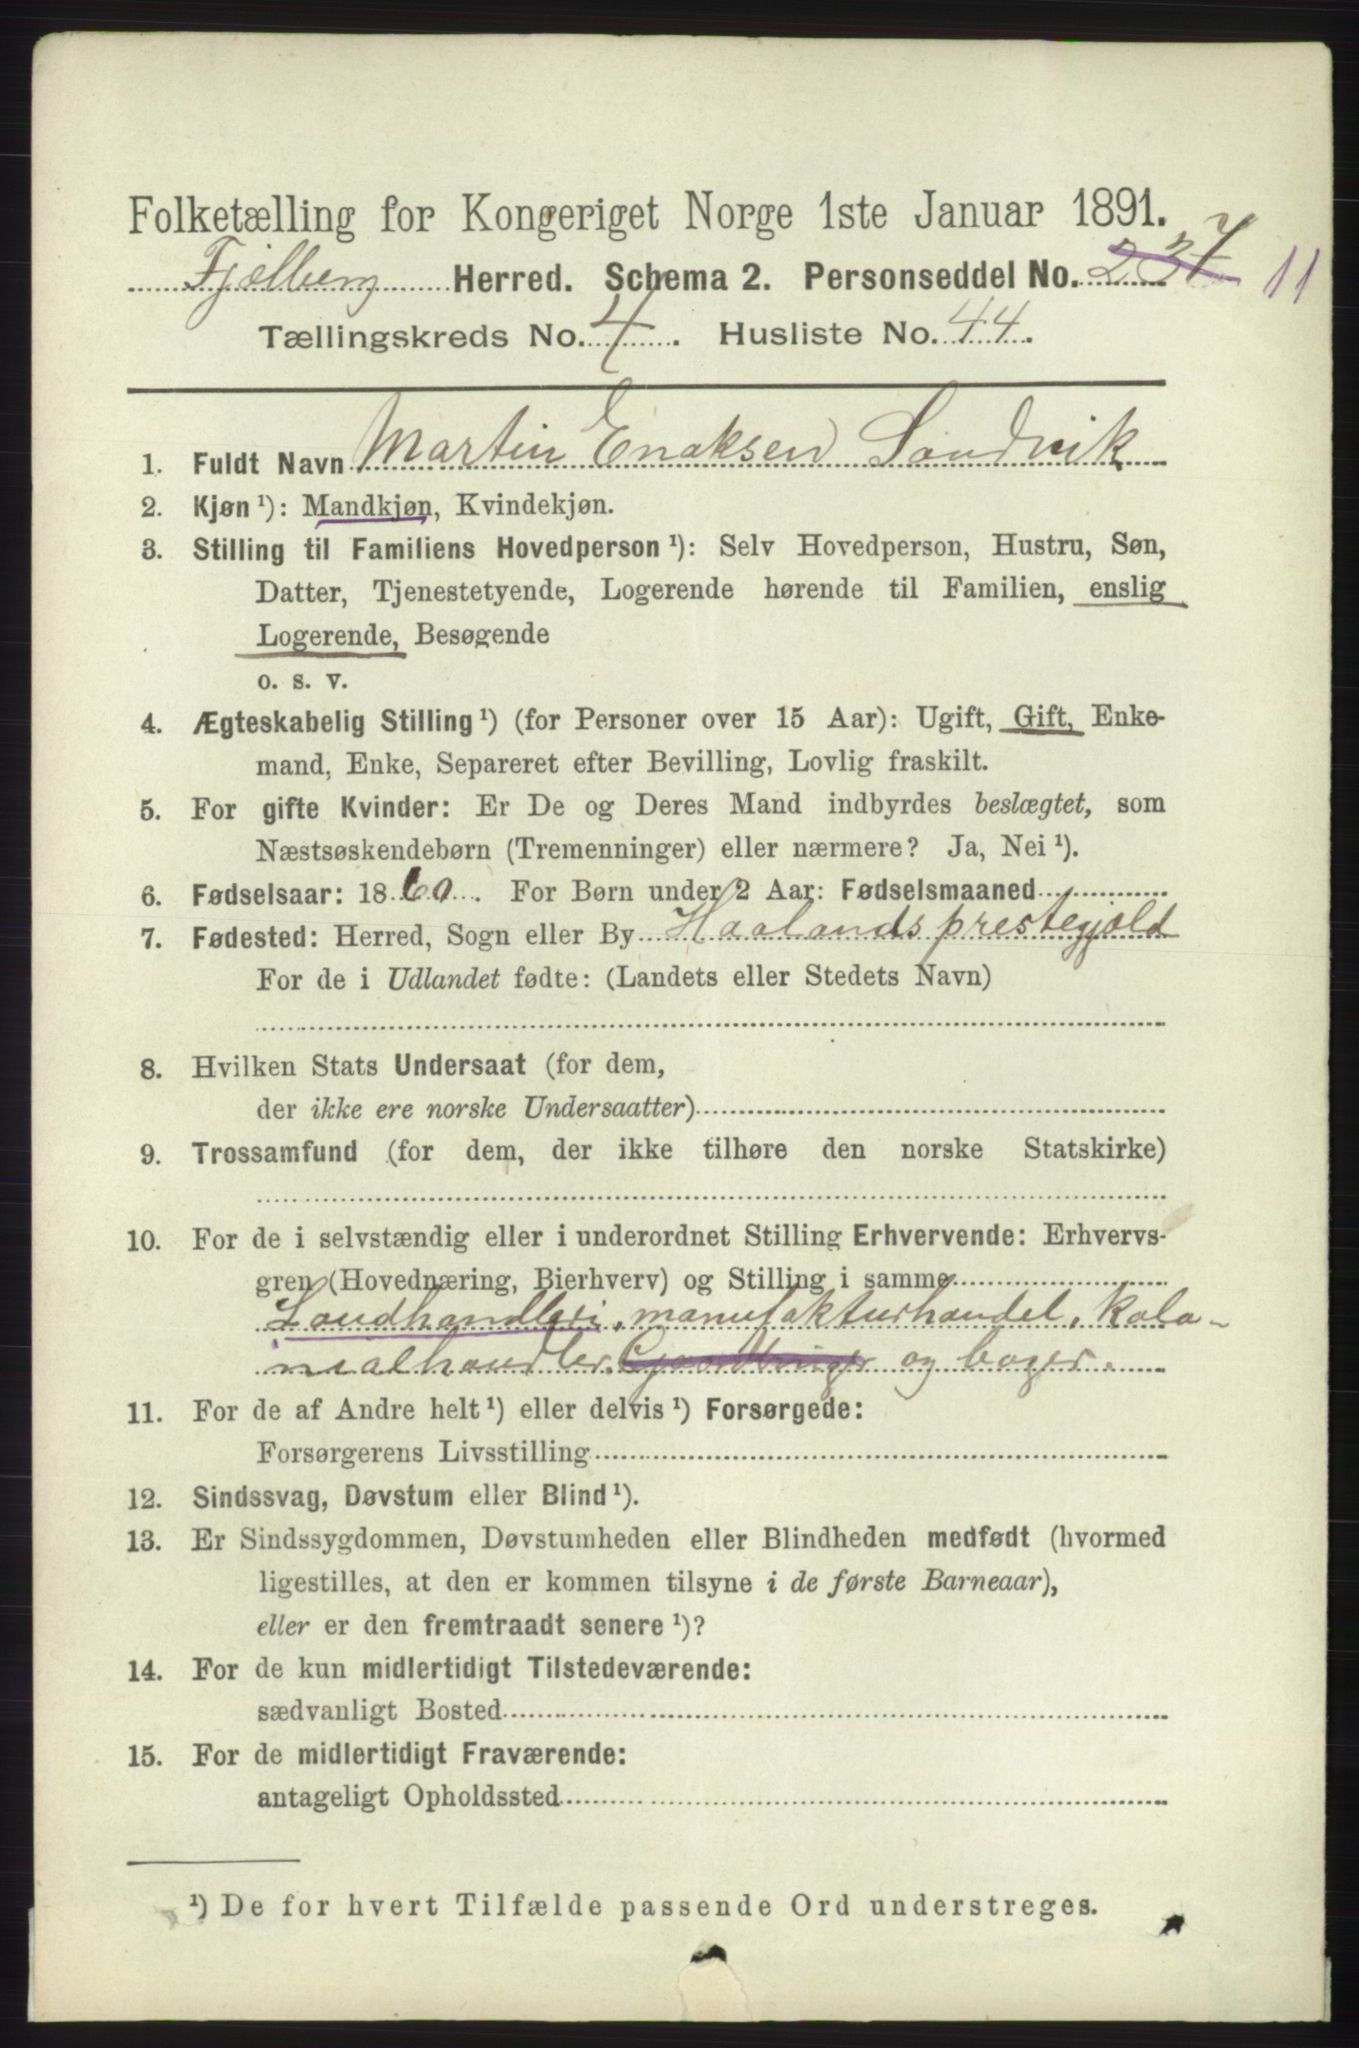 Folketælling for Kongeriget Norge 1ste Januar 1891.
Fjelberg Herred. Schema 2. Personseddel No. 237 11
Tællingskreds No. 4. Husliste No. 44.
1. Fuldt Navn Martin Enoksen Sandvik
2. Kjøn ¹): Mandkjøn, Kvindekjøn.
3. Stilling til Familiens Hovedperson ¹): Selv Hovedperson, Hustru, Søn,
Datter, Tjenestetyende, Logerende hørende til Familien, enslig
Logerende, Besøgende
o. s. v.
4. Ægteskabelig Stilling ¹) (for Personer over 15 Aar): Ugift, Gift, Enke-
mand, Enke, Separeret efter Bevilling, Lovlig fraskilt.
5. For gifte Kvinder: Er De og Deres Mand indbyrdes beslægtet, som
Næstsøskendebørn (Tremenninger) eller nærmere? Ja, Nei ¹).
6. Fødselsaar: 1860. For Børn under 2 Aar: Fødselsmaaned
7. Fødested: Herred, Sogn eller By Haalands prestegjeld
For de i Udlandet fødte: (Landets eller Stedets Navn)
8. Hvilken Stats Undersaat (for dem,
der ikke ere norske Undersaatter)
9. Trossamfund (for dem, der ikke tilhøre den norske Statskirke)
10. For de i selvstændig eller i underordnet Stilling Erhvervende: Erhvervs-
gren (Hovednæring, Bierhverv) og Stilling i samme
Landhandleri, manufakturhandel, kolo-
nialhandler, Gaardbruger og bager.
11. For de af Andre helt ¹) eller delvis ¹) Forsørgede:
Forsørgerens Livsstilling
12. Sindssvag, Døvstum eller Blind ¹).
13. Er Sindssygdommen, Døvstumheden eller Blindheden medfødt (hvormed
ligestilles, at den er kommen tilsyne i de første Barneaar),
eller er den fremtraadt senere ¹)?
14. For de kun midlertidigt Tilstedeværende:
sædvanligt Bosted
15. For de midlertidigt Fraværende:
antageligt Opholdssted
¹) De for hvert Tilfælde passende Ord understreges.